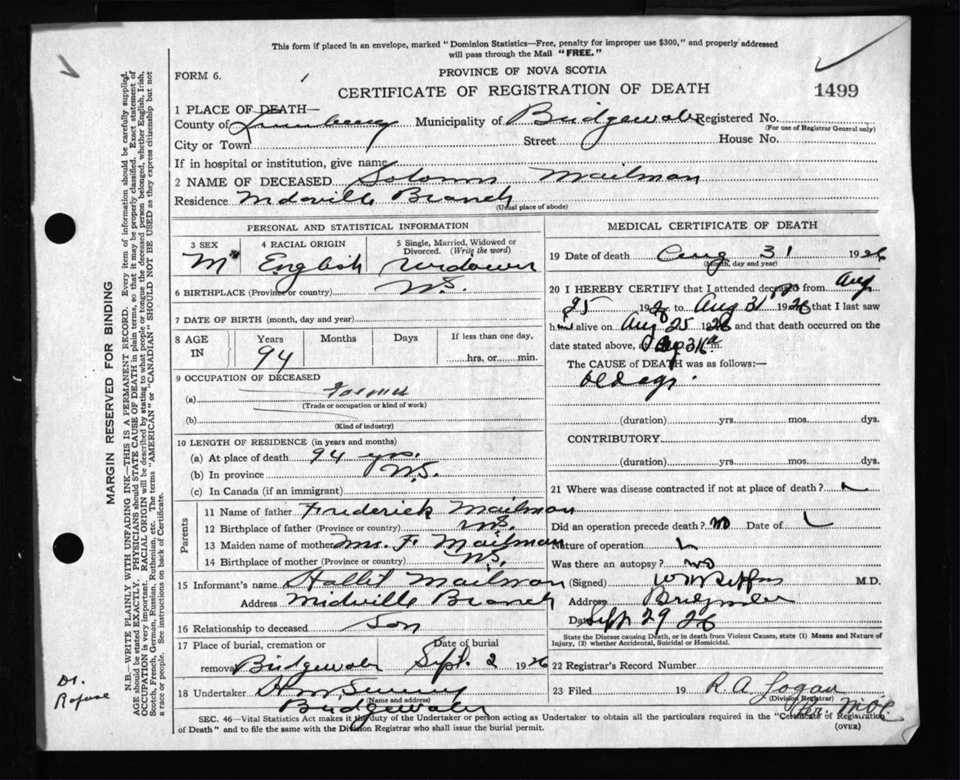 This form if placed in an envelope, marked "Dominion Statistics—Free, penalty for improper use $300," and properly addressed
will pass through the Mail "FREE."
FORM 6.
PROVINCE OF NOVA SCOTIA
CERTIFICATE OF REGISTRATION OF DEATH
1499
1 PLACE OF DEATH—
County of Lunenburg Municipality of Bridgewater Registered No.
(For use of Registrar General only)
City or Town Street House No.
If in hospital or institution, give name
2 NAME OF DECEASED Solomon Mailman
Residence Midville Branch
(Usual place of abode)
PERSONAL AND STATISTICAL INFORMATION
3 SEX 4 RACIAL ORIGIN 5 Single, Married, Widowed or
Divorced. (Write the word)
M English Widower
6 BIRTHPLACE (Province or country) N.S.
7 DATE OF BIRTH (month, day and year)
8 AGE IN Years Months Days If less than one day,
94 hrs. or min.
9 OCCUPATION OF DECEASED
(a) Farmer
(Trade or occupation or kind of work)
(b)
(Kind of industry)
10 LENGTH OF RESIDENCE (in years and months)
(a) At place of death 94 yrs.
(b) In province N.S.
(c) In Canada (if an immigrant)
Parents
11 Name of father Frederick Mailman
12 Birthplace of father (Province or country) N.S.
13 Maiden name of mother Mrs. F. Mailman
14 Birthplace of mother (Province or country) N.S.
15 Informant's name Mailman
Address Midville Branch
16 Relationship to deceased Son
17 Place of burial, cremation or Date of burial
removal Bridgewater Sept. 2 1926
18 Undertaker
(Name and address)
Bridgewater
MEDICAL CERTIFICATE OF DEATH
19 Date of death Aug 31 1926
(Month, day and year)
20 I HEREBY CERTIFY that I attended deceased from Aug
25 1926 to Aug 31 1926 that I last saw
h alive on Aug 25 1926 and that death occurred on the
date stated above, at m.
The CAUSE of DEATH was as follows:
Old age.
(duration) yrs. mos. dys.
CONTRIBUTORY
(duration) yrs. mos. dys.
21 Where was disease contracted if not at place of death?
Did an operation precede death? no Date of
Nature of operation
Was there an autopsy? no
(Signed) M.D.
Address
Date Sept 29 26
State the Disease causing Death, or in death from Violent Causes, state (1) Means and Nature of
Injury, (2) whether Accidental, Suicidal or Homicidal.
22 Registrar's Record Number
23 Filed 19 R. A. Logan
(Division Registrar)
SEC. 46—Vital Statistics Act makes it the duty of the Undertaker or person acting as Undertaker to obtain all the particulars required in the "Certificate of Registration
of Death" and to file the same with the Division Registrar who shall issue the burial permit.
(OVER)
MARGIN RESERVED FOR BINDING
N.B.—WRITE PLAINLY WITH UNFADING INK—THIS IS A PERMANENT RECORD. Every item of information should be carefully supplied.
AGE should be stated EXACTLY. PHYSICIANS should STATE CAUSE OF DEATH in plain terms, so that it may be properly classified. Exact statement of
OCCUPATION is very important. RACIAL ORIGIN will be described by stating to what people or tongue the deceased person belonged, whether English, Irish,
Scotch, French, German, Russian, Ruthenian, etc. The terms "AMERICAN" or "CANADIAN" SHOULD NOT BE USED as they express citizenship but not
a race or people. See instructions on back of Certificate.